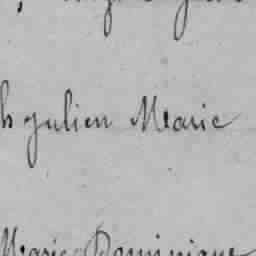 h Julien Marie
Marie Dominique